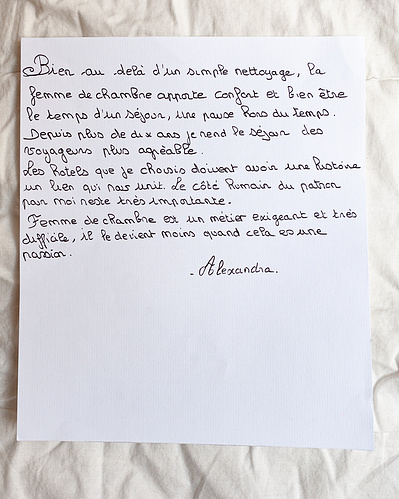 Bien au delà d'un simple nettoyage, la
femme de chambre apporte confort et bien être
le temps d'un séjour, une pause hors du temps.
Depuis plus de dix ans je rend le séjour des
voyageurs plus agréable.
Les hotels que je choisis doivent avoir une histoire
un lien qui nous unit. Le côté humain du patron
pour moi reste très importante.
Femme de chambre est un métier exigeant et très
difficile, il le devient moins quand cela es une
passion.
- Alexandra.